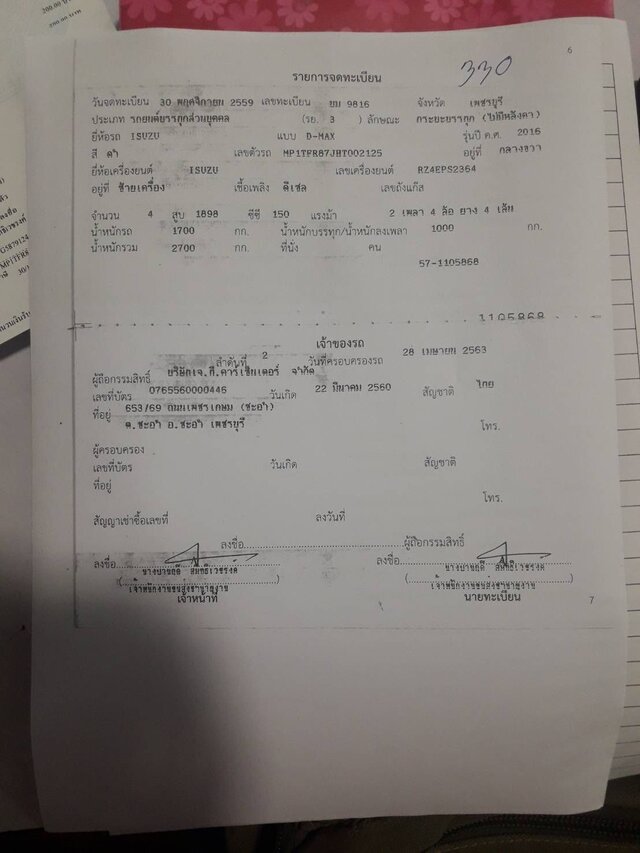 200.00 บาท
6
330
รายการจดทะเบียน
วันจดทะเบียน 30 พฤศจิกายน 2559 เลขทะเบียน ยม 9816 จังหวัด เพชรบุรี
ประเภท รถยนต์บรรทุกส่วนบุคคล (รย. 3 ) ลักษณะ กระบะบรรทุก (ไม่มีหลังคา)
ยี่ห้อรถ ISUZU แบบ D-MAX รุ่นปี ค.ศ. 2016
สี ดำ เลขตัวรถ MP1TFR87JHT002125 อยู่ที่ กลางขวา
ยี่ห้อเครื่องยนต์ ISUZU เลขเครื่องยนต์ RZ4EPS2364
อยู่ที่ ซ้ายเครื่อง เชื้อเพลิง ดีเซล เลขถังแก๊ส
จำนวน 4 สูบ 1898 ซีซี 150 แรงม้า 2 เพลา 4 ล้อ ยาง 4 เส้น
น้ำหนักรถ 1700 กก. น้ำหนักบรรทุก/น้ำหนักลงเพลา 1000 กก.
น้ำหนักรวม 2700 กก. ที่นั่ง คน
57-1105868
1105868
เจ้าของรถ
ลำดับที่ 2 วันที่ครอบครองรถ 28 เมษายน 2563
ผู้ถือกรรมสิทธิ์ บริษัทเจ.ที.คาร์เซ็นเตอร์ จำกัด
เลขที่บัตร 0765560000446 วันเกิด 22 มีนาคม 2560 สัญชาติ ไทย
ที่อยู่ 653/69 ถนนเพชรเกษม (ชะอำ)
ต.ชะอำ อ.ชะอำ เพชรบุรี โทร.
ผู้ครอบครอง
เลขที่บัตร วันเกิด สัญชาติ
ที่อยู่ โทร.
สัญญาเช่าซื้อเลขที่ ลงวันที่
ลงชื่อ ผู้ถือกรรมสิทธิ์
ลงชื่อ ลงชื่อ
เจ้าพนักงานขนส่งชำนาญงาน เจ้าพนักงานขนส่งชำนาญงาน
เจ้าหน้าที่ นายทะเบียน 7